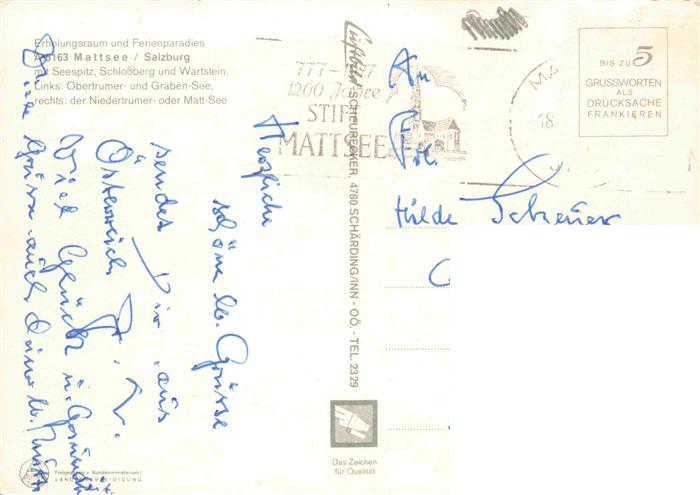 Erholungsraum und Ferienparadies
A-5163 Mattsee / Salzburg
mit Seespitz, Schloßberg und Wartstein.
Links: Obertrumer- und Graben-See,
rechts: der Niedertrumer- oder Matt-See
777-1977
1200 Jahre
STIFT
MATTSEE
18
BIS ZU 5
GRUSSWORTEN
ALS
DRUCKSACHE
FRANKIEREN
Luftbild SCHEURECKER, 4780 SCHÄRDING/INN - OÖ. - TEL. 2329
An
Frl.
Hilde
Herzliche
schöne lb. Grüsse
sendet Dir aus
Österreich
Viel Glück u. Gesundheit
Grüsse auch Deine lb.
Das Zeichen
für Qualität
Freigegeben v. Bundesministerium f.
LANDESVERTEIDIGUNG